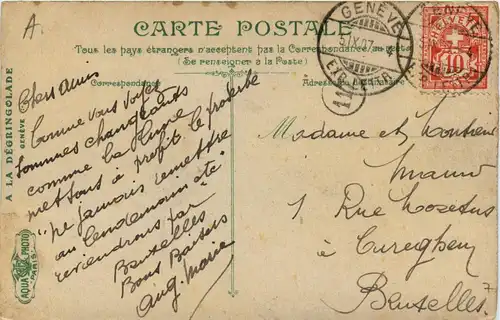 A.
CARTE POSTALE
Tous les pays étrangers n'acceptent pas la Correspondance au recto
(Se renseigner à la Poste)
Correspondance
Adresse du destinataire
GENÈVE
IX.07
EXP. LETT.
HELVETIA
10
A LA DÉGRINGOLADE
GENÈVE
AQUA PHOTO
PARIS
Chers Amis
Comme vous voyez
sommes changeants
comme la lune
mettons à profit le proverbe
"ne jamais remettre
au lendemain etc"
reviendrons par
Bruxelles
Bons Baisers
Aug. Marie
Madame et Monsieur
1 Rue
à Cureghem
Bruxelles